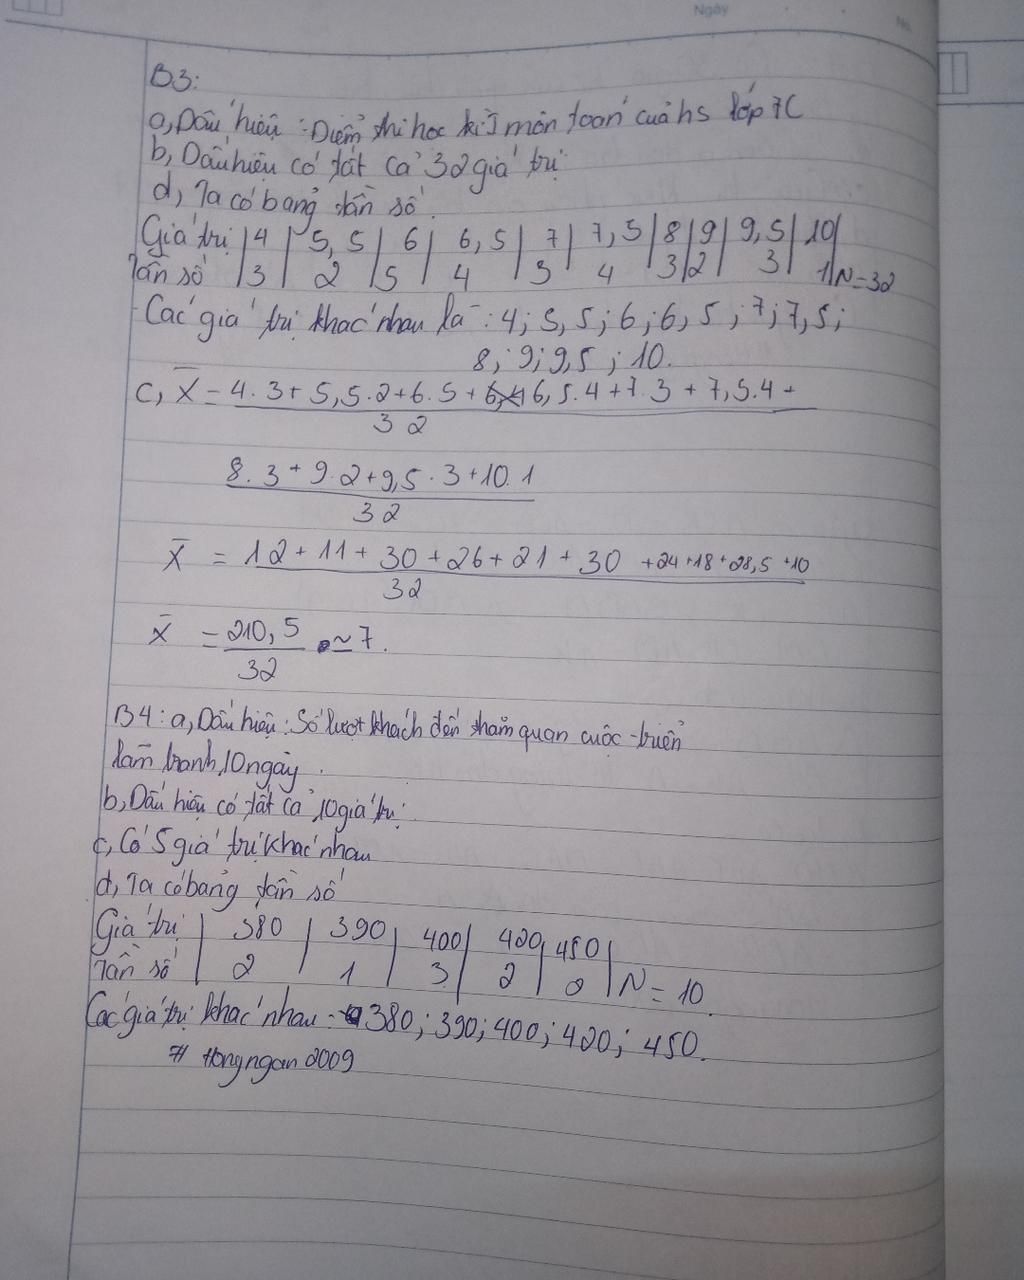 Ngày
No.
B3:
a, Dấu hiệu: Điểm thi học kì I môn toán của hs lớp 7C
b, Dấu hiệu có tất cả 32 giá trị
d, Ta có bảng tần số.
Giá trị | 4 | 5,5 | 6 | 6,5 | 7 | 7,5 | 8 | 9 | 9,5 | 10 |
Tần số | 3 | 2 | 5 | 4 | 3 | 4 | 3 | 2 | 3 | 1 | N=32
- Các giá trị khác nhau là: 4; 5,5; 6; 6,5; 7; 7,5;
8; 9; 9,5; 10.
c, X̄ = 4.3+5,5.2+6.5+6,5.4+7.3+7,5.4+
32
8.3+9.2+9,5.3+10.1
32
X̄ = 12+11+30+26+21+30+24+18+28,5+10
32
X̄ = 210,5 ≃ 7.
32
B4: a, Dấu hiệu: Số lượt khách đến thăm quan cuộc triển
lãm tranh 10 ngày.
b, Dấu hiệu có tất cả 10 giá trị
c, Có 5 giá trị khác nhau
d, Ta có bảng tần số
Giá trị | 380 | 390 | 400 | 420 | 450 |
Tần số | 2 | 1 | 3 | 2 | 2 | N=10.
Các giá trị khác nhau: 380; 390; 400; 420; 450.
# Hongngan2009